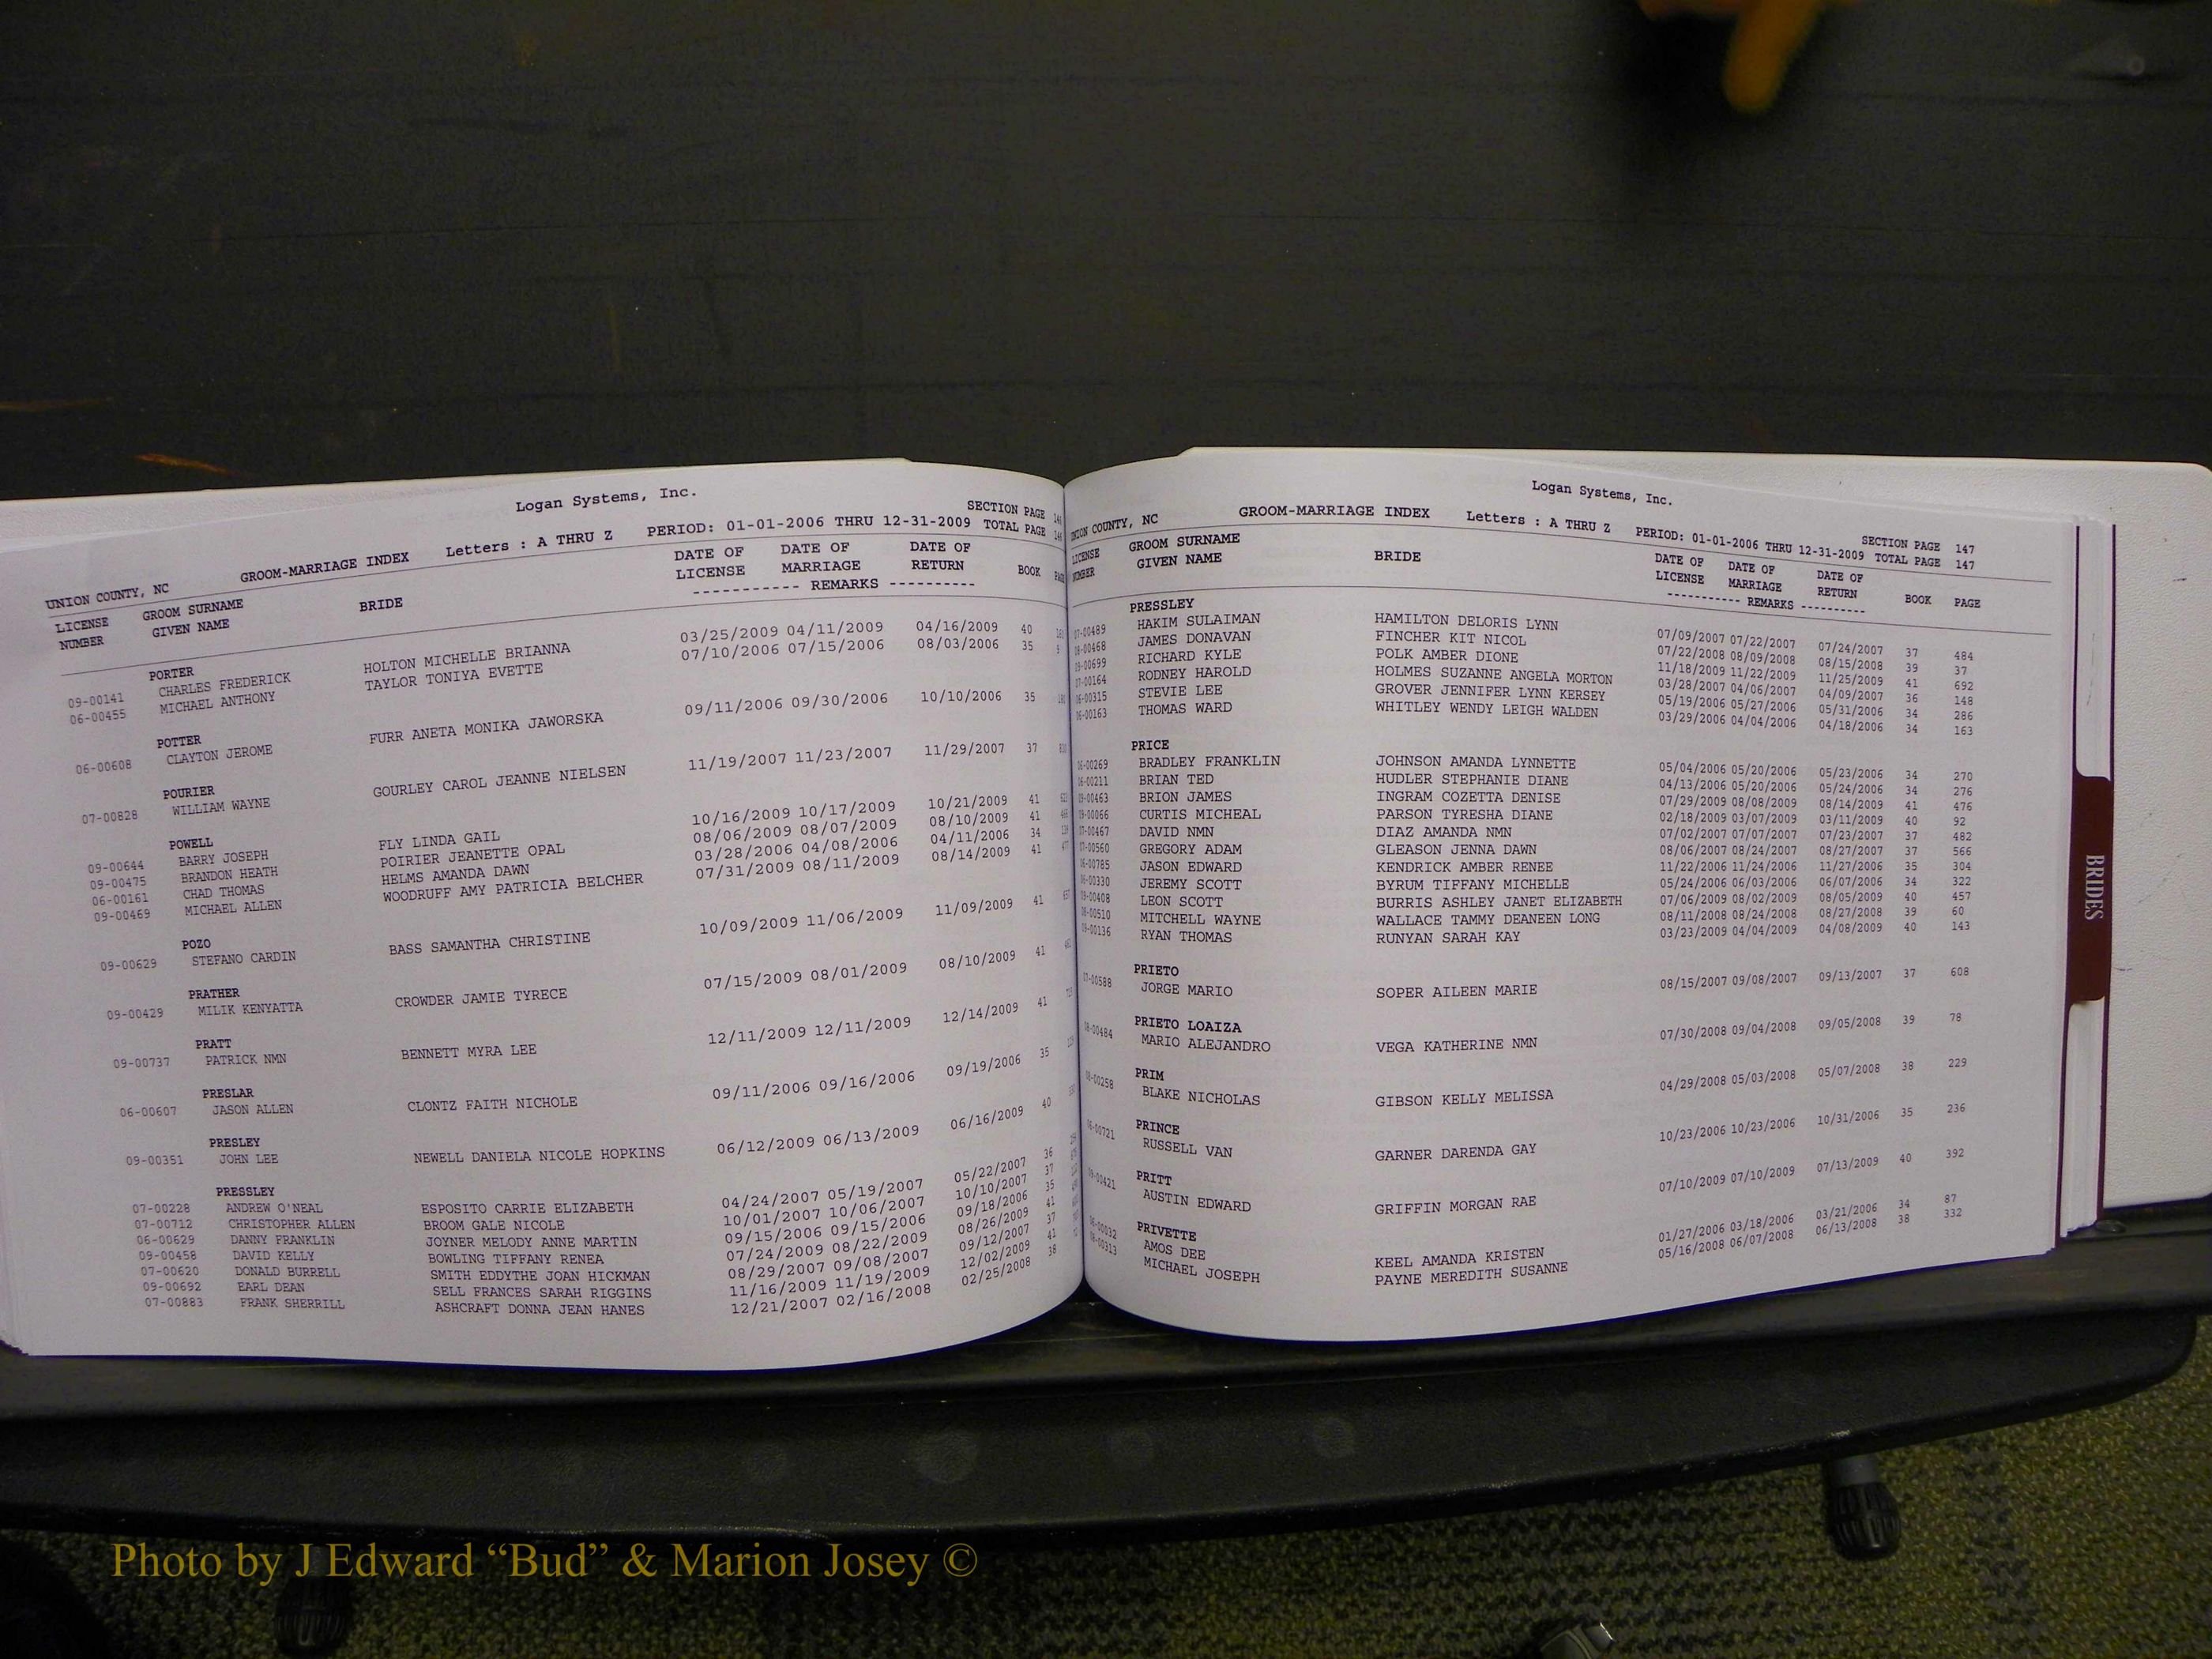 Logan Systems, Inc.
SECTION PAGE
UNION COUNTY, NC GROOM-MARRIAGE INDEX Letters : A THRU Z PERIOD: 01-01-2006 THRU 12-31-2009 TOTAL PAGE
LICENSE GROOM SURNAME BRIDE DATE OF DATE OF DATE OF
NUMBER GIVEN NAME LICENSE MARRIAGE RETURN BOOK PAGE
----------- REMARKS -----------
PORTER
09-00141 CHARLES FREDERICK HOLTON MICHELLE BRIANNA 03/25/2009 04/11/2009 04/16/2009 40
06-00455 MICHAEL ANTHONY TAYLOR TONIYA EVETTE 07/10/2006 07/15/2006 08/03/2006 35
POTTER
06-00608 CLAYTON JEROME FURR ANETA MONIKA JAWORSKA 09/11/2006 09/30/2006 10/10/2006 35
POURIER
07-00828 WILLIAM WAYNE GOURLEY CAROL JEANNE NIELSEN 11/19/2007 11/23/2007 11/29/2007 37
POWELL
09-00644 BARRY JOSEPH FLY LINDA GAIL 10/16/2009 10/17/2009 10/21/2009 41
09-00475 BRANDON HEATH POIRIER JEANETTE OPAL 08/06/2009 08/07/2009 08/10/2009 41
06-00161 CHAD THOMAS HELMS AMANDA DAWN 03/28/2006 04/08/2006 04/11/2006 34
09-00469 MICHAEL ALLEN WOODRUFF AMY PATRICIA BELCHER 07/31/2009 08/11/2009 08/14/2009 41
POZO
09-00629 STEFANO CARDIN BASS SAMANTHA CHRISTINE 10/09/2009 11/06/2009 11/09/2009 41
PRATHER
09-00429 MILIK KENYATTA CROWDER JAMIE TYRECE 07/15/2009 08/01/2009 08/10/2009 41
PRATT
09-00737 PATRICK NMN BENNETT MYRA LEE 12/11/2009 12/11/2009 12/14/2009 41
PRESLAR
06-00607 JASON ALLEN CLONTZ FAITH NICHOLE 09/11/2006 09/16/2006 09/19/2006 35
PRESLEY
09-00351 JOHN LEE NEWELL DANIELA NICOLE HOPKINS 06/12/2009 06/13/2009 06/16/2009 40
PRESSLEY
07-00228 ANDREW O'NEAL ESPOSITO CARRIE ELIZABETH 04/24/2007 05/19/2007 05/22/2007 36
07-00712 CHRISTOPHER ALLEN BROOM GALE NICOLE 10/01/2007 10/06/2007 10/10/2007 37
06-00629 DANNY FRANKLIN JOYNER MELODY ANNE MARTIN 09/15/2006 09/15/2006 09/18/2006 35
09-00458 DAVID KELLY BOWLING TIFFANY RENEA 07/24/2009 08/22/2009 08/26/2009 41
07-00620 DONALD BURRELL SMITH EDDYTHE JOAN HICKMAN 08/29/2007 09/08/2007 09/12/2007 37
09-00692 EARL DEAN SELL FRANCES SARAH RIGGINS 11/16/2009 11/19/2009 12/02/2009 41
07-00883 FRANK SHERRILL ASHCRAFT DONNA JEAN HANES 12/21/2007 02/16/2008 02/25/2008 38
Logan Systems, Inc.
SECTION PAGE 147
UNION COUNTY, NC GROOM-MARRIAGE INDEX Letters : A THRU Z PERIOD: 01-01-2006 THRU 12-31-2009 TOTAL PAGE 147
LICENSE GROOM SURNAME BRIDE DATE OF DATE OF DATE OF
NUMBER GIVEN NAME LICENSE MARRIAGE RETURN BOOK PAGE
----------- REMARKS ----------
PRESSLEY
07-00489 HAKIM SULAIMAN HAMILTON DELORIS LYNN 07/09/2007 07/22/2007 07/24/2007 37 484
08-00468 JAMES DONAVAN FINCHER KIT NICOL 07/22/2008 08/09/2008 08/15/2008 39 37
09-00699 RICHARD KYLE POLK AMBER DIONE 11/18/2009 11/22/2009 11/25/2009 41 692
07-00164 RODNEY HAROLD HOLMES SUZANNE ANGELA MORTON 03/28/2007 04/06/2007 04/09/2007 36 148
06-00315 STEVIE LEE GROVER JENNIFER LYNN KERSEY 05/19/2006 05/27/2006 05/31/2006 34 286
06-00163 THOMAS WARD WHITLEY WENDY LEIGH WALDEN 03/29/2006 04/04/2006 04/18/2006 34 163
PRICE
06-00269 BRADLEY FRANKLIN JOHNSON AMANDA LYNNETTE 05/04/2006 05/20/2006 05/23/2006 34 270
06-00211 BRIAN TED HUDLER STEPHANIE DIANE 04/13/2006 05/20/2006 05/24/2006 34 276
09-00463 BRION JAMES INGRAM COZETTA DENISE 07/29/2009 08/08/2009 08/14/2009 41 476
09-00066 CURTIS MICHEAL PARSON TYRESHA DIANE 02/18/2009 03/07/2009 03/11/2009 40 92
07-00467 DAVID NMN DIAZ AMANDA NMN 07/02/2007 07/07/2007 07/23/2007 37 482
07-00560 GREGORY ADAM GLEASON JENNA DAWN 08/06/2007 08/24/2007 08/27/2007 37 566
06-00785 JASON EDWARD KENDRICK AMBER RENEE 11/22/2006 11/24/2006 11/27/2006 35 304
06-00330 JEREMY SCOTT BYRUM TIFFANY MICHELLE 05/24/2006 06/03/2006 06/07/2006 34 322
09-00408 LEON SCOTT BURRIS ASHLEY JANET ELIZABETH 07/06/2009 08/02/2009 08/05/2009 40 457
08-00510 MITCHELL WAYNE WALLACE TAMMY DEANEEN LONG 08/11/2008 08/24/2008 08/27/2008 39 60
09-00136 RYAN THOMAS RUNYAN SARAH KAY 03/23/2009 04/04/2009 04/08/2009 40 143
PRIETO
07-00588 JORGE MARIO SOPER AILEEN MARIE 08/15/2007 09/08/2007 09/13/2007 37 608
PRIETO LOAIZA
08-00484 MARIO ALEJANDRO VEGA KATHERINE NMN 07/30/2008 09/04/2008 09/05/2008 39 78
PRIM
08-00258 BLAKE NICHOLAS GIBSON KELLY MELISSA 04/29/2008 05/03/2008 05/07/2008 38 229
PRINCE
06-00721 RUSSELL VAN GARNER DARENDA GAY 10/23/2006 10/23/2006 10/31/2006 35 236
PRITT
09-00421 AUSTIN EDWARD GRIFFIN MORGAN RAE 07/10/2009 07/10/2009 07/13/2009 40 392
PRIVETTE
06-00032 AMOS DEE KEEL AMANDA KRISTEN 01/27/2006 03/18/2006 03/21/2006 34 87
08-00313 MICHAEL JOSEPH PAYNE MEREDITH SUSANNE 05/16/2008 06/07/2008 06/13/2008 38 332
BRIDES
Photo by J Edward “Bud” & Marion Josey ©